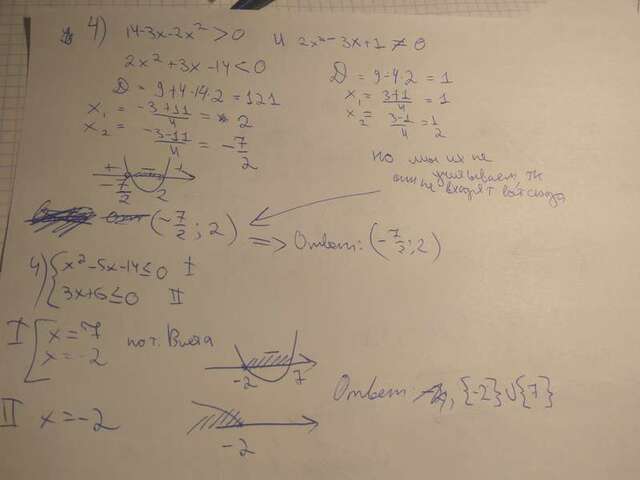 4) 14-3x-2x² > 0 и 2x²-3x+1 ≠ 0
2x²+3x-14<0
D = 9+4·14·2 = 121
x₁ = -3+11/4 = 2
x₂ = -3-11/4 = -7/2
D = 9-4·2 = 1
x₁ = 3+1/4 = 1
x₂ = 3-1/4 = 1/2
но мы их не
учитываем, тк
они не входят
+ - +
-7/2 2
(-7/2; 2) => Ответ: (-7/2; 2)
4) { x²-5x-14≤0 I
3x+6≤0 II
I [ x = 7 по т. Виета
x = -2
- -2 7
II x = -2
-2
Ответ: {-2}∪{7}